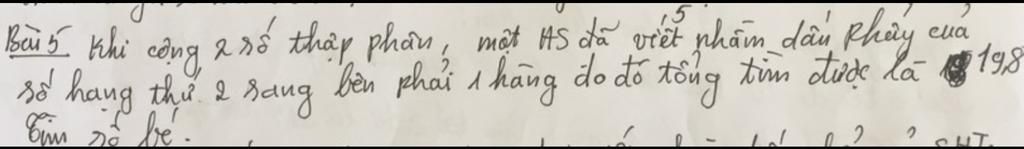 Bài 5 Khi cộng 2 số thập phân, một HS đã viết nhầm dấu phẩy của
số hạng thứ 2 sang bên phải 1 hàng do đó tổng tìm được là 198
Tìm số bé.